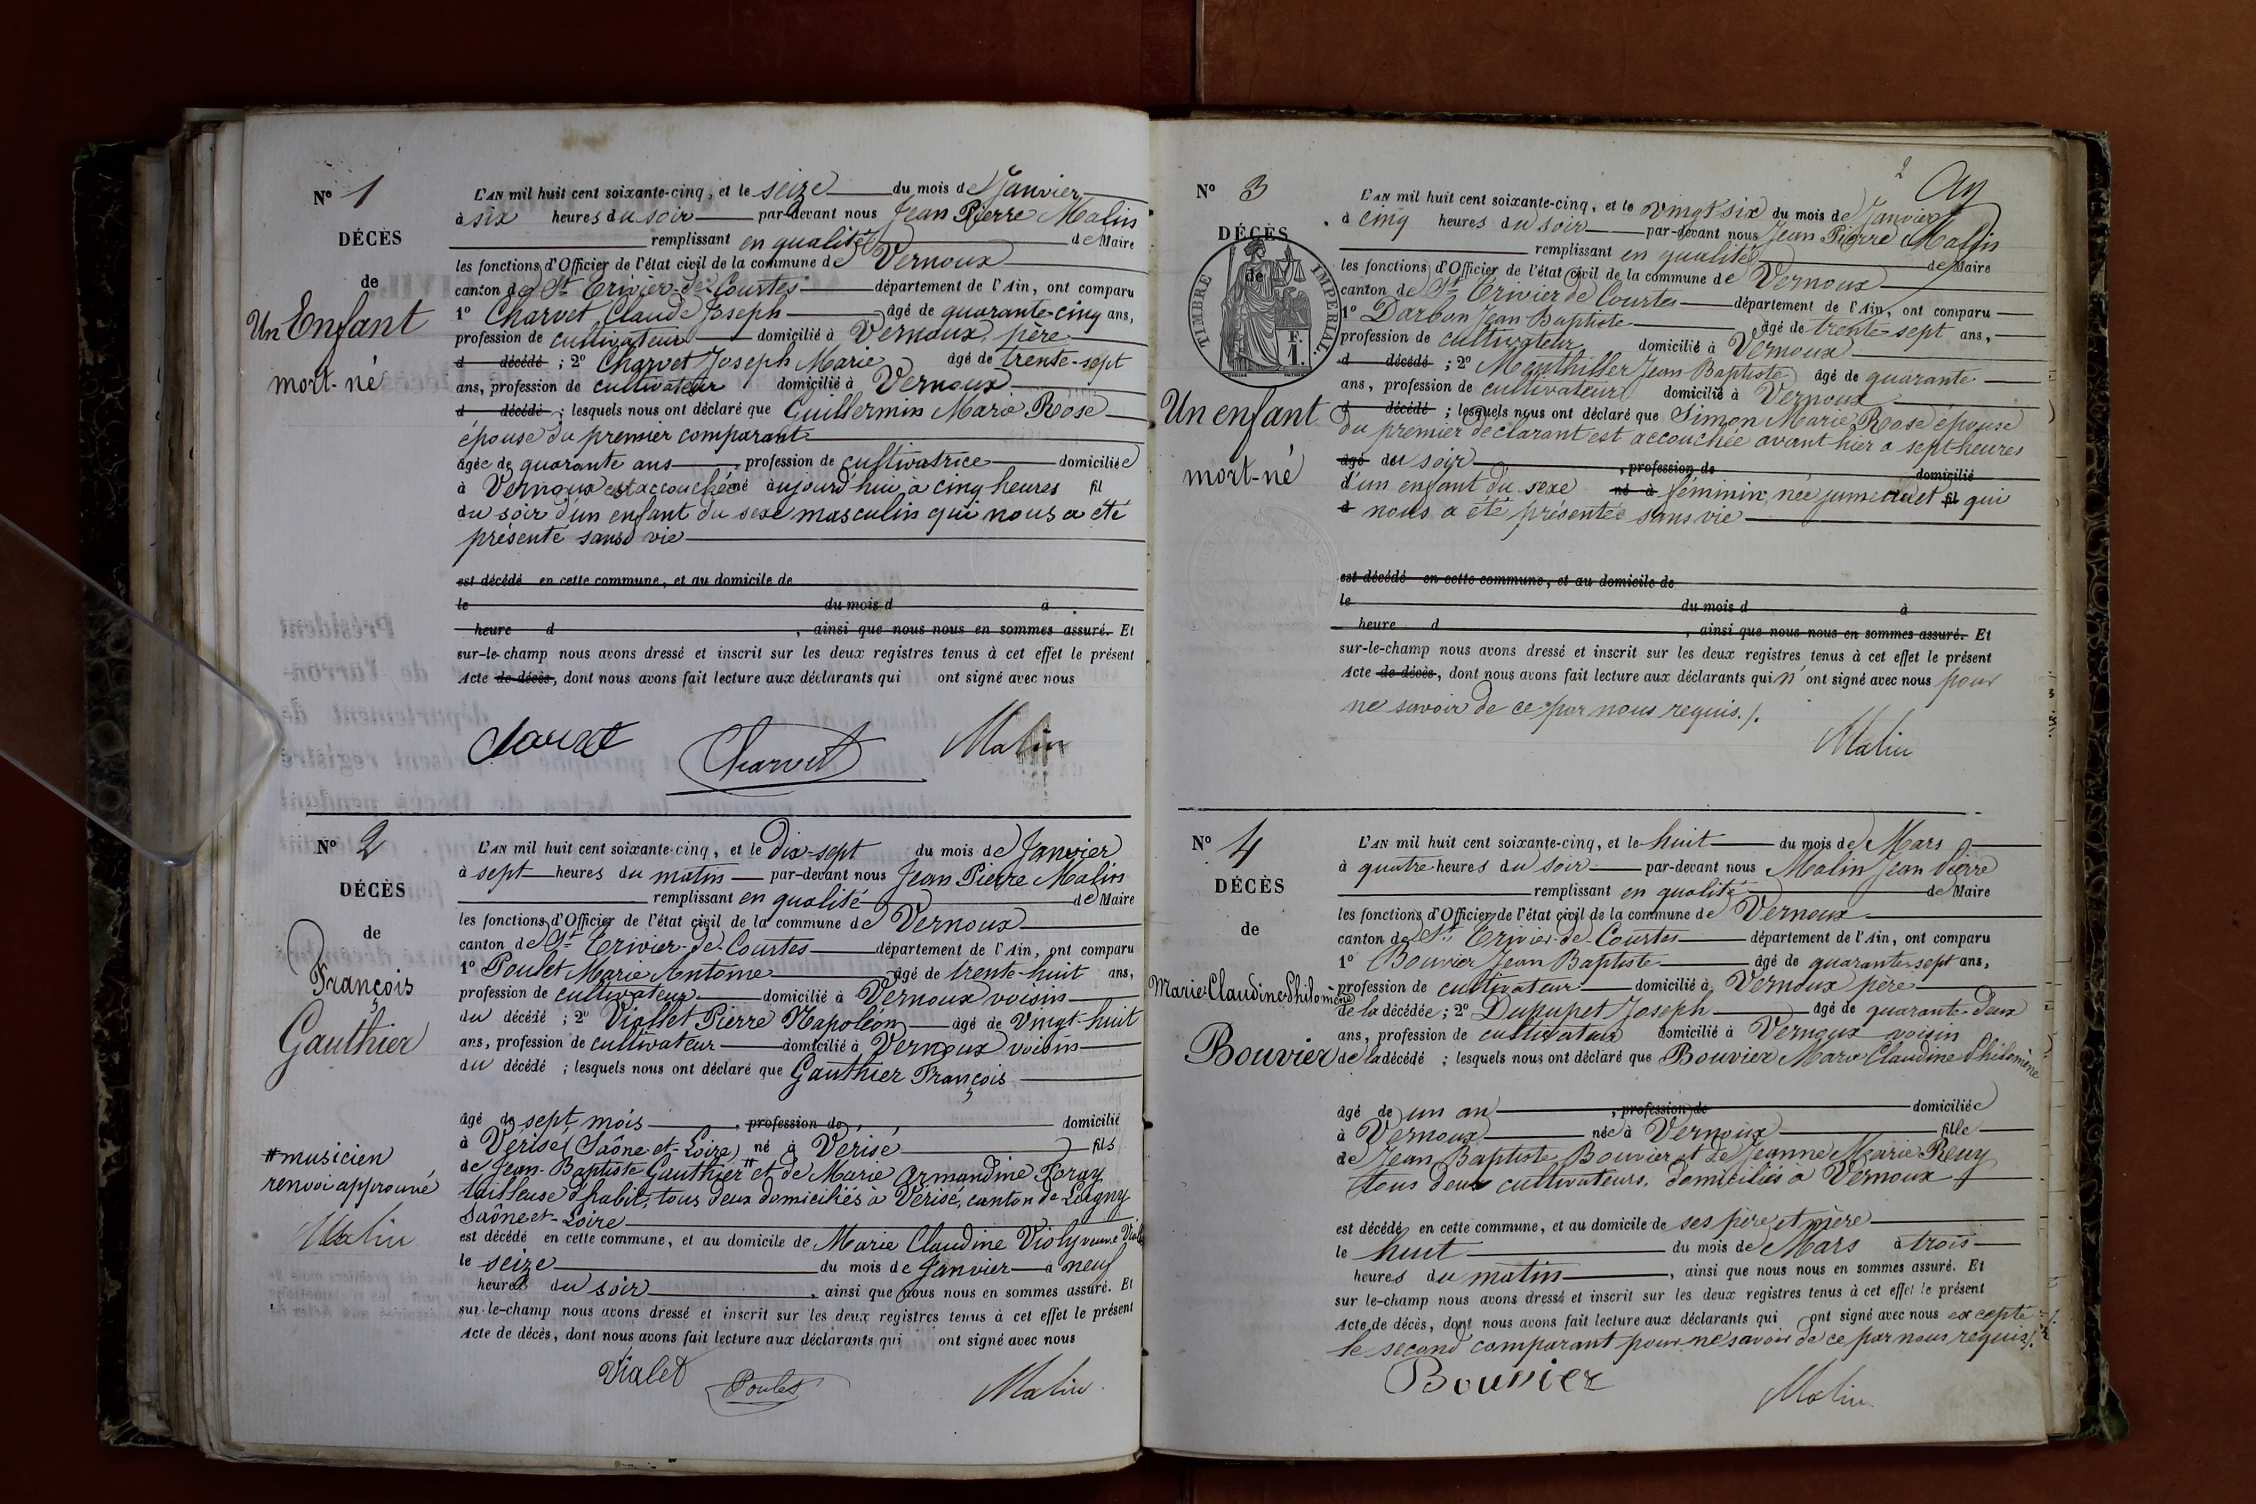 N° 1
DÉCÈS
de
Un Enfant
mort-né
L'AN mil huit cent soixante-cinq, et le seize du mois de Janvier
à six heures du soir par-devant nous Jean Pierre Malin
remplissant en qualité de Maire
les fonctions d'Officier de l'état civil de la commune de Vernoux
canton de St Trivier-de-Courtes département de l'Ain, ont comparu
1° Charvet Claude Joseph âgé de quarante-cinq ans,
profession de cultivateur domicilié à Vernoux père
d décédé ; 2° Charvet Joseph Marie âgé de trente-sept
ans, profession de cultivateur domicilié à Vernoux
d décédé ; lesquels nous ont déclaré que Guillermin Marie Rose
épouse du premier comparant
âgée de quarante ans, profession de cultivatrice domiciliée
à Vernoux est accouchée né aujourd'hui à cinq heures fil
du soir d'un enfant du sexe masculin qui nous a été
présenté sans vie
est décédé en cette commune, et au domicile de
le du mois d à
heure d , ainsi que nous nous en sommes assuré. Et
sur-le-champ nous avons dressé et inscrit sur les deux registres tenus à cet effet le présent
Acte de décès, dont nous avons fait lecture aux déclarants qui ont signé avec nous
Charvet Charvet Malin
N° 2
DÉCÈS
de
François
Gauthier
L'AN mil huit cent soixante-cinq, et le dix-sept du mois de Janvier
à sept heures du matin par-devant nous Jean Pierre Malin
remplissant en qualité de Maire
les fonctions d'Officier de l'état civil de la commune de Vernoux
canton de St Trivier-de-Courtes département de l'Ain, ont comparu
1° Poulet Marie Antoine âgé de trente-huit ans,
profession de cultivateur domicilié à Vernoux voisin
du décédé ; 2° Viallet Pierre Napoléon âgé de vingt-huit
ans, profession de cultivateur domicilié à Vernoux voisin
du décédé ; lesquels nous ont déclaré que Gauthier François
âgé de sept mois, profession de domicilié
à Verisé (Saône-et-Loire) né à Verisé fils
de Jean-Baptiste Gauthier # et de Marie Armandine Foray
tailleuse d'habit, tous deux domiciliés à Verisé, canton de
Saône et-Loire
est décédé en cette commune, et au domicile de Marie Claudine Violy veuve
le seize du mois de Janvier à neuf
heures du soir, ainsi que nous nous en sommes assuré. Et
sur-le-champ nous avons dressé et inscrit sur les deux registres tenus à cet effet le présent
Acte de décès, dont nous avons fait lecture aux déclarants qui ont signé avec nous
#musicien
renvoi approuvé
Malin
Vialet Poulet Malin
2
N° 3
DÉCÈS
de
TIMBRE IMPÉRIAL.
F.
1.
Un enfant
mort-né
L'AN mil huit cent soixante-cinq, et le vingt-six du mois de Janvier
à cinq heures du soir par-devant nous Jean Pierre Malin
remplissant en qualité de Maire
les fonctions d'Officier de l'état civil de la commune de Vernoux
canton de St Trivier de Courtes département de l'Ain, ont comparu
1° Darbon Jean Baptiste âgé de trente-sept ans,
profession de cultivateur domicilié à Vernoux
d décédé ; 2° Manthiller Jean Baptiste âgé de quarante
ans, profession de cultivateur domicilié à Vernoux
d décédé ; lesquels nous ont déclaré que Simon Marie Rose épouse
du premier déclarant est accouchée avant hier à sept heures
âgé de du soir, profession de domicilié
d'un enfant du sexe né à féminin, née jumelle et fil qui
d nous a été présentée sans vie
est décédé en cette commune, et au domicile de
le du mois d à
heure d , ainsi que nous nous en sommes assuré. Et
sur-le-champ nous avons dressé et inscrit sur les deux registres tenus à cet effet le présent
Acte de décès, dont nous avons fait lecture aux déclarants qui n'ont signé avec nous pour
ne savoir de ce par nous requis./.
Malin
N° 4
DÉCÈS
de
Marie Claudine Philomène
Bouvier
L'AN mil huit cent soixante-cinq, et le huit du mois de Mars
à quatre heures du soir par-devant nous Malin Jean Pierre
remplissant en qualité de Maire
les fonctions d'Officier de l'état civil de la commune de Vernoux
canton de St Trivier-de-Courtes département de l'Ain, ont comparu
1° Bouvier Jean Baptiste âgé de quarante-sept ans,
profession de cultivateur domicilié à Vernoux père
de la décédée ; 2° Dupupet Joseph âgé de quarante-deux
ans, profession de cultivateur domicilié à Vernoux voisin
de la décédé ; lesquels nous ont déclaré que Bouvier Marie Claudine Philomène
âgé de un an, profession de domiciliée
à Vernoux née à Vernoux fille
de Jean Baptiste Bouvier et de Jeanne Marie Reuy
tous deux cultivateurs, domiciliés à Vernoux
est décédé en cette commune, et au domicile de ses père et mère
le huit du mois de Mars à trois
heures du matin, ainsi que nous nous en sommes assuré. Et
sur le-champ nous avons dressé et inscrit sur les deux registres tenus à cet effet le présent
Acte de décès, dont nous avons fait lecture aux déclarants qui ont signé avec nous excepté
le second comparant pour ne savoir de ce par nous requis./.
Bouvier Malin